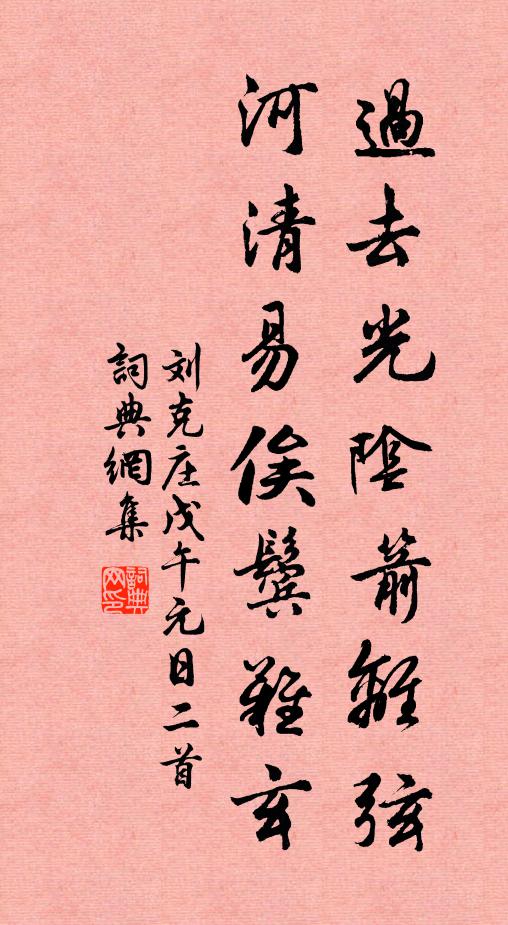 過去光陰箭離弦
河清易俟鬢難玄
刘克庄戊午元日二首
詞典網集
詞典网印